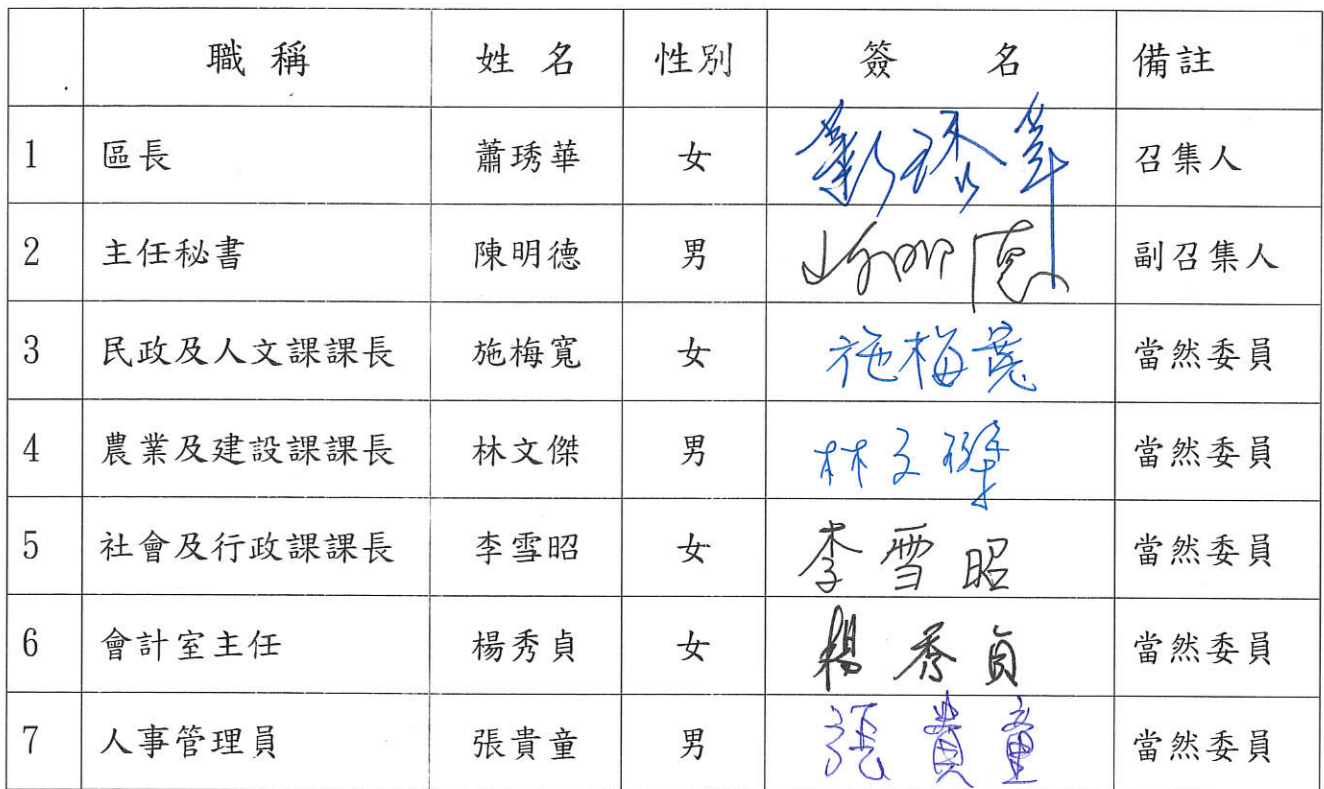 職稱 姓名 性別 簽名 備註
1 區長 蕭琇華 女 蕭琇華 召集人
2 主任秘書 陳明德 男 陳明德 副召集人
3 民政及人文課課長 施梅寬 女 施梅寬 當然委員
4 農業及建設課課長 林文傑 男 林文傑 當然委員
5 社會及行政課課長 李雪昭 女 李雪昭 當然委員
6 會計室主任 楊秀貞 女 楊秀貞 當然委員
7 人事管理員 張貴童 男 張貴童 當然委員